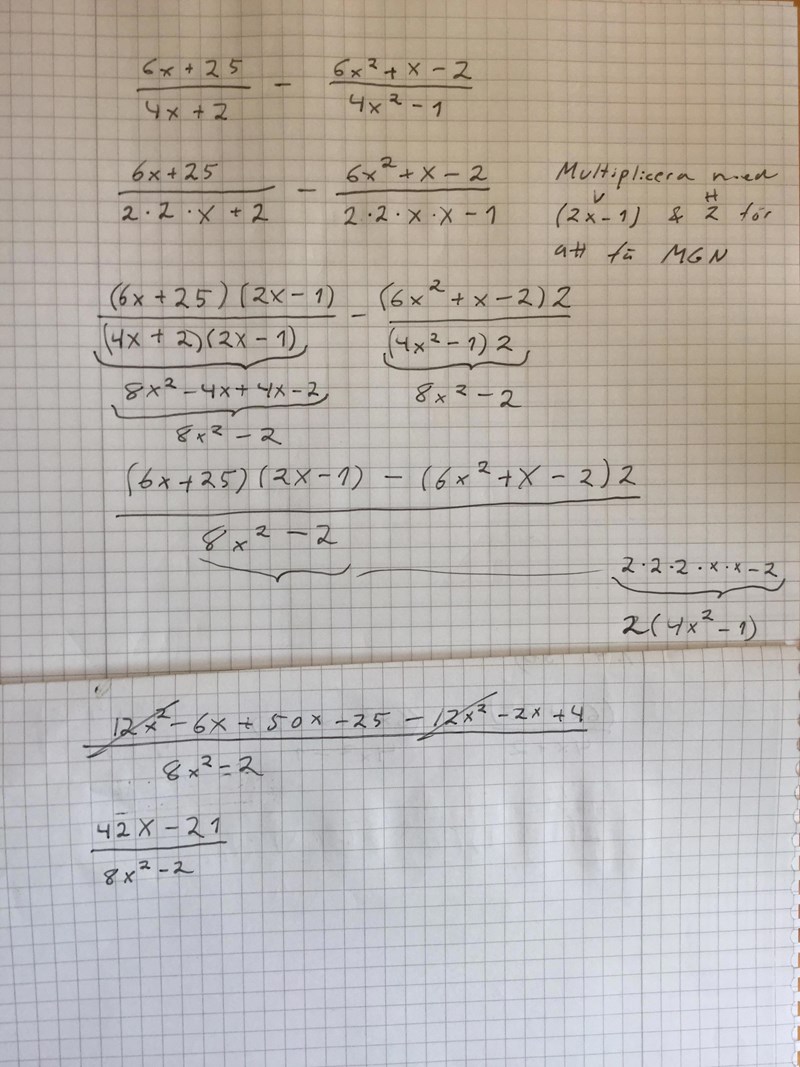 (6x + 25)/(4x + 2) - (6x² + x - 2)/(4x² - 1)
(6x + 25)/(2·2·x + 2) - (6x² + x - 2)/(2·2·x·x - 1)
Multiplicera med
V H
(2x - 1) & 2 för
att få MGN
((6x + 25)(2x - 1))/((4x + 2)(2x - 1)) - ((6x² + x - 2)2)/((4x² - 1)2)
8x² - 4x + 4x - 2 8x² - 2
8x² - 2
(6x + 25)(2x - 1) - (6x² + x - 2)2
8x² - 2
2·2·2·x·x - 2
2(4x² - 1)
12x² - 6x + 50x - 25 - 12x² - 2x + 4
8x² - 2
42x - 21
8x² - 2